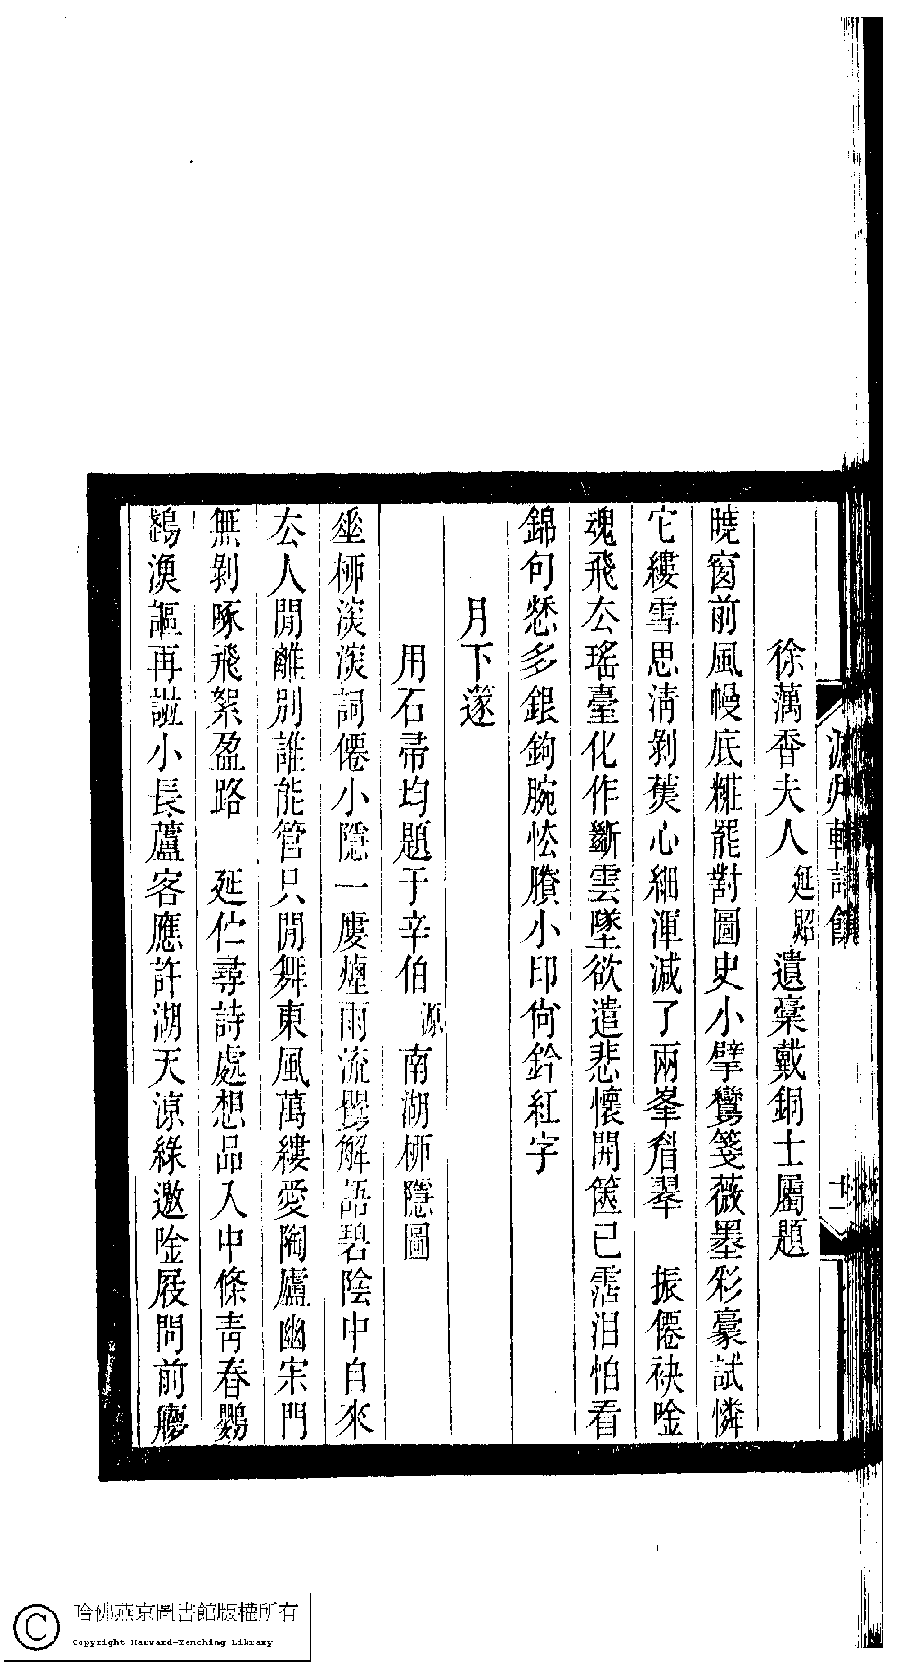 徐藕香夫人延照遺稾戴銅士屬題
曉窗前風幔底糚罷對圖史小擘鸞箋薇墨彩豪試憐
它縷雪思淸剝蕉心細渾減了兩峯眉翠　振僊袂唫
魂飛厺瑤臺化作斷雲墜欲遣悲懷開篋已霑泪怕看
錦句愁多銀鉤腕怯賸小印衸鈐紅字
月下邃
用石帚均題于辛伯源南湖桺隱圖
坐桺淡淡詞僊小隱一廔煙雨流鶯解語碧陰中自來
厺人閒離別誰能管只閒舞東風萬縷愛陶廬幽宋門
無剝啄飛絮盈路　延伫尋詩處想品入中條青春鸚
鷁漁謳再譜小長蘆客應許湖天涼綠邀唫屐問前廳
哈佛燕京圖書館版權所有
Copyright Harvard-Yenching Library